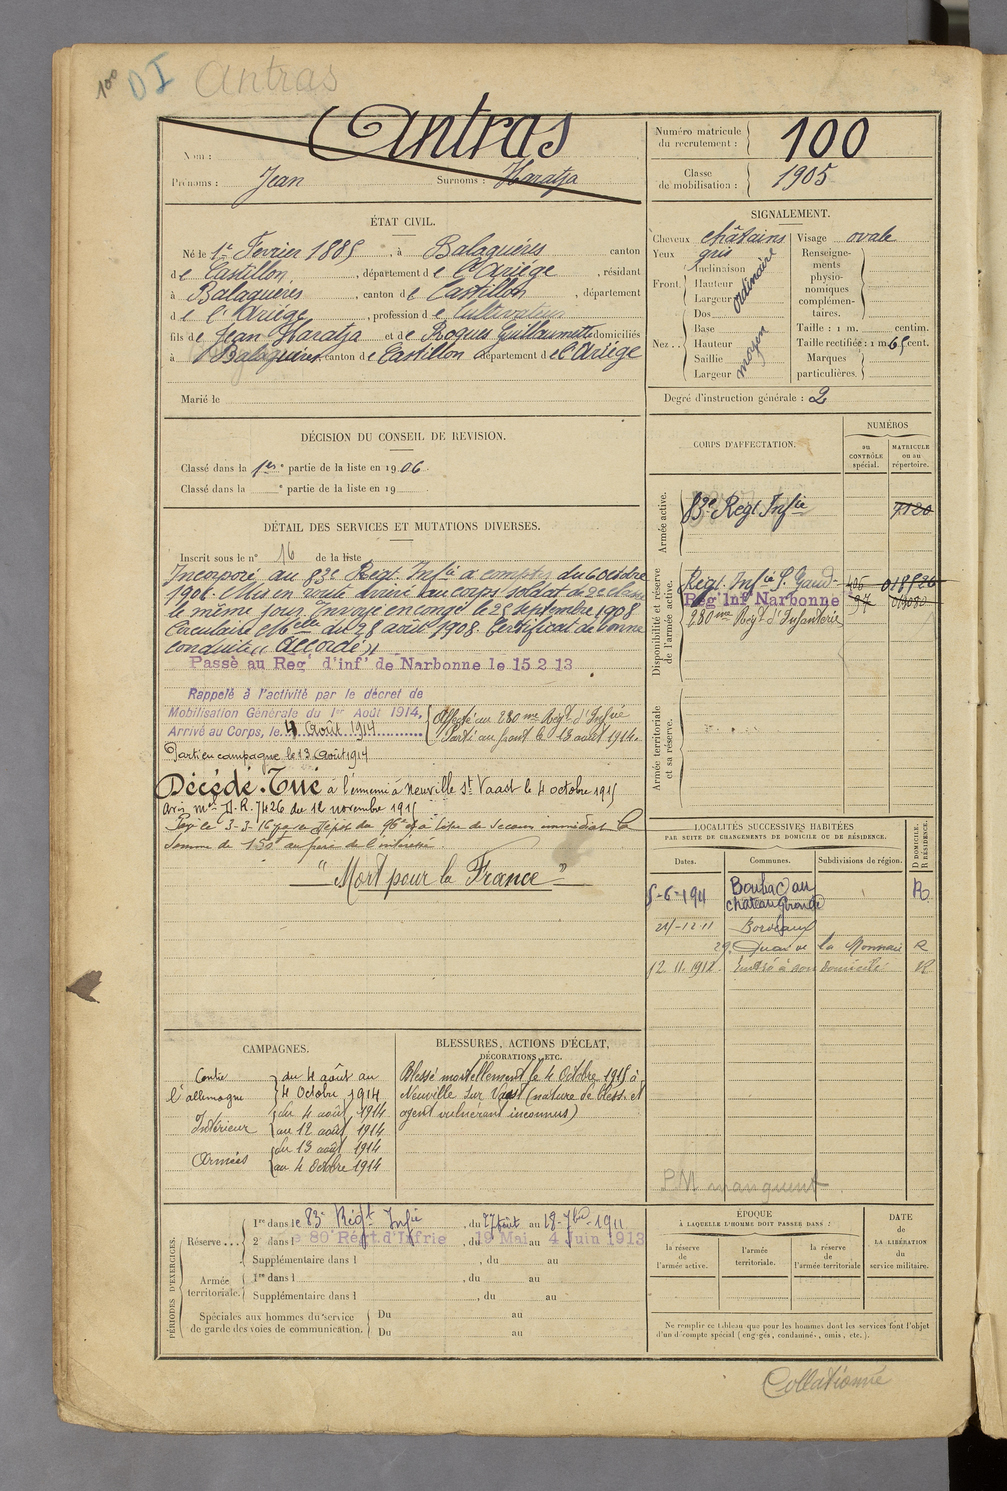 100 DI Antras
Antras
Nom :
Prénoms : Jean Surnoms : Haratja
Numéro matricule du recrutement : 100
Classe de mobilisation : 1905
ÉTAT CIVIL.
Né le 1er Février 1885, à Balaguères canton
de Castillon, département de l'Ariège, résidant
à Balaguères, canton de Castillon, département
de l'Ariège, profession de Cultivateur
fils de Jean Haratja et de Roques Guillaumette domiciliés
à Balaguères canton de Castillon département de l'Ariège
Marié le
SIGNALEMENT.
Cheveux châtains
Yeux gris
Front. Inclinaison
Hauteur
Largeur
ordinaire
Nez. . Dos
Base
Hauteur
Saillie
Largeur
moyen
Visage ovale
Renseigne-
ments
physio-
nomiques
complémen-
taires.
Taille : 1 m. centim.
Taille rectifiée : 1 m. 65 cent.
Marques
particulières.
Degré d'instruction générale : 2
DÉCISION DU CONSEIL DE REVISION.
Classé dans la 1re partie de la liste en 1906.
Classé dans la e partie de la liste en 19
CORPS D'AFFECTATION.
NUMÉROS
au CONTRÔLE spécial.
MATRICULE ou au répertoire.
Armée active.
83e Régt Infie 7120
Disponibilité et réserve de l'armée active.
Régt. Infie St Gaud-
Rég' Inf' Narbonne
280me Régt d'Infanterie
Armée territoriale et sa réserve.
DÉTAIL DES SERVICES ET MUTATIONS DIVERSES.
Inscrit sous le n° 16 de la liste
Incorporé au 83e Régt. Infie à compter du 6 octobre
1906. Mis en route arrivé au corps soldat de 2e classe
le même jour. Envoyé en congé le 25 septembre 1908
Circulaire Mielle du 28 août 1908. Certificat de bonne
conduite "Accordé"
Passé au Reg' d'inf' de Narbonne le 15 2 13
Rappelé à l'activité par le décret de
Mobilisation Générale du 1er Août 1914.
Arrivé au Corps, le 4 Août 1914
Affecté au 280me Régt. d'Infie
Parti au front le 13 août 1914.
Parti en campagne le 13 Août 1914
Décédé. Tué à l'ennemi à Neuville St Vaast le 4 octobre 1915
Avis mel D.R. 7426 du 12 novembre 1915
Payé le 3-3-16 par le Dépôt du 96e à titre de secours immédiat la
somme de 150 au père de l'intéressé.
"Mort pour la France"
LOCALITÉS SUCCESSIVES HABITÉES
PAR SUITE DE CHANGEMENTS DE DOMICILE OU DE RÉSIDENCE.
Dates. Communes. Subdivisions de région. D DOMICILE. R RÉSIDENCE.
5-6-1911 Bouliac au château Gironde R
21-12-11 Bordeaux
29, Quai de la Monnaie R
12.11.1912. Rentré à son domicile R
PM manquent
CAMPAGNES.
Contre l'allemagne du 4 août au
4 Octobre 1914
Intérieur du 4 août 1914
au 12 août 1914
Armées du 13 août 1914
au 4 Octobre 1914
BLESSURES, ACTIONS D'ÉCLAT,
DÉCORATIONS, ETC.
Blessé mortellement le 4 Octobre 1915 à
Neuville sur Vaast (nature de bless. et
agent vulnérant inconnus)
PÉRIODES D'EXERCICES.
Réserve . . .
1re dans le 83e Régt Infie, du 27 août au 18-7bre-1911
2e dans le 80e Régt. d'Infrie, du 19 Mai au 4 Juin 1913
Supplémentaire dans l , du au
Armée territoriale.
1re dans l , du au
Supplémentaire dans l , du au
Spéciales aux hommes du service
de garde des voies de communication.
Du au
Du au
ÉPOQUE
À LAQUELLE L'HOMME DOIT PASSER DANS :
la réserve de l'armée active.
l'armée territoriale.
la réserve de l'armée territoriale
DATE
de
LA LIBÉRATION
du
service militaire.
Ne remplir ce tableau que pour les hommes dont les services font l'objet
d'un décompte spécial (engagés, condamnés, omis, etc.).
Collationné